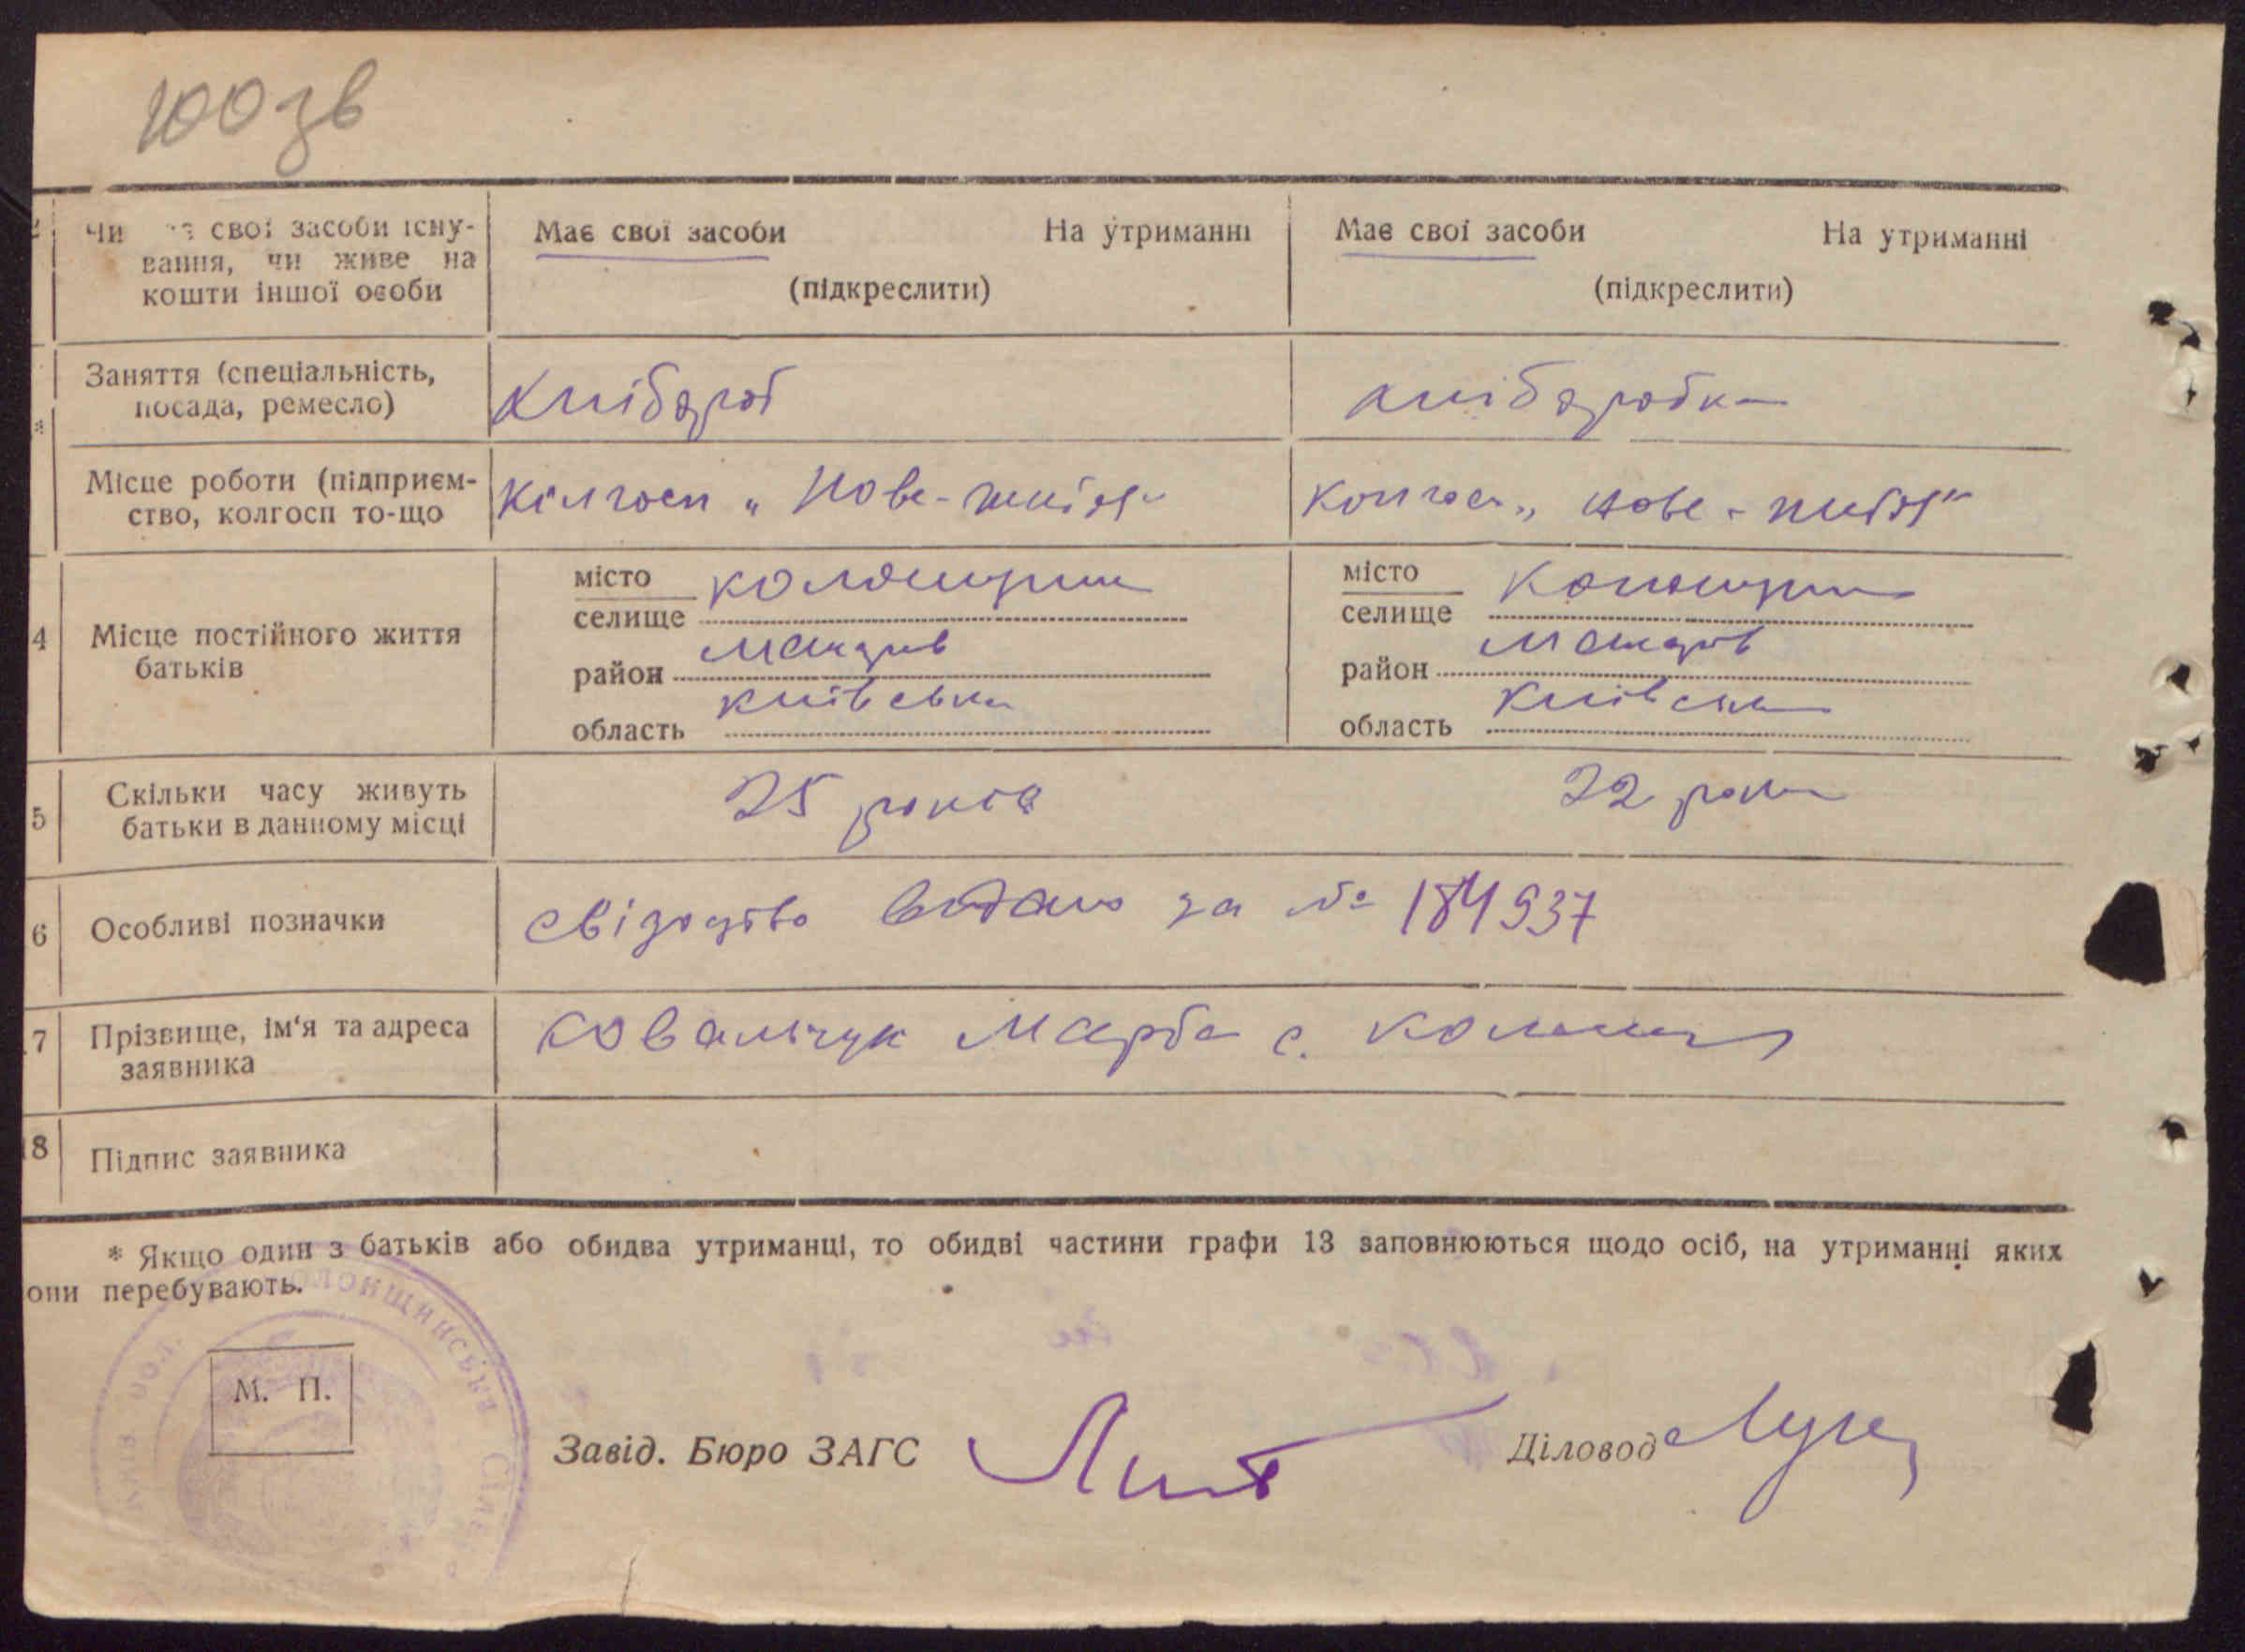 100 зв
Чи свої засоби існу-
вання, чи живе на
кошти іншої особи
Має свої засоби На утриманні
(підкреслити)
Має свої засоби На утриманні
(підкреслити)
Заняття (спеціальність,
посада, ремесло)
хлібороб
хліборобка
Місце роботи (підприєм-
ство, колгосп то-що
Колгосп „Нове-життя"
Колгосп „Нове-життя"
4 Місце постійного життя
батьків
місто
селище
район
область київська
місто
селище
район
область київська
5 Скільки часу живуть
батьки в данному місці
25 років
22 роки
6 Особливі позначки
свідоцтво видано за № 184937
7 Прізвище, ім'я та адреса
заявника
Ковальчук Марфа с.
18 Підпис заявника
* Якщо один з батьків або обидва утриманці, то обидві частини графи 13 заповнюються щодо осіб, на утриманні яких
они перебувають.
М. П.
Завід. Бюро ЗАГС
Діловод